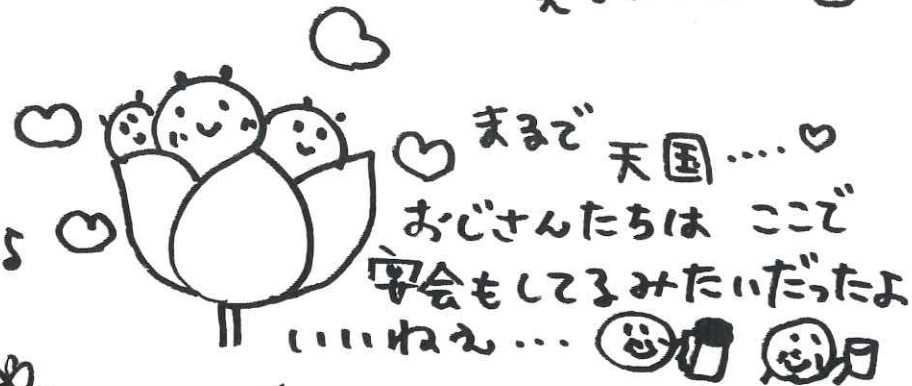 まるで
天国‥‥♡
おじさんたちは ここで
宴会もしてるみたいだったよ
いいねえ…